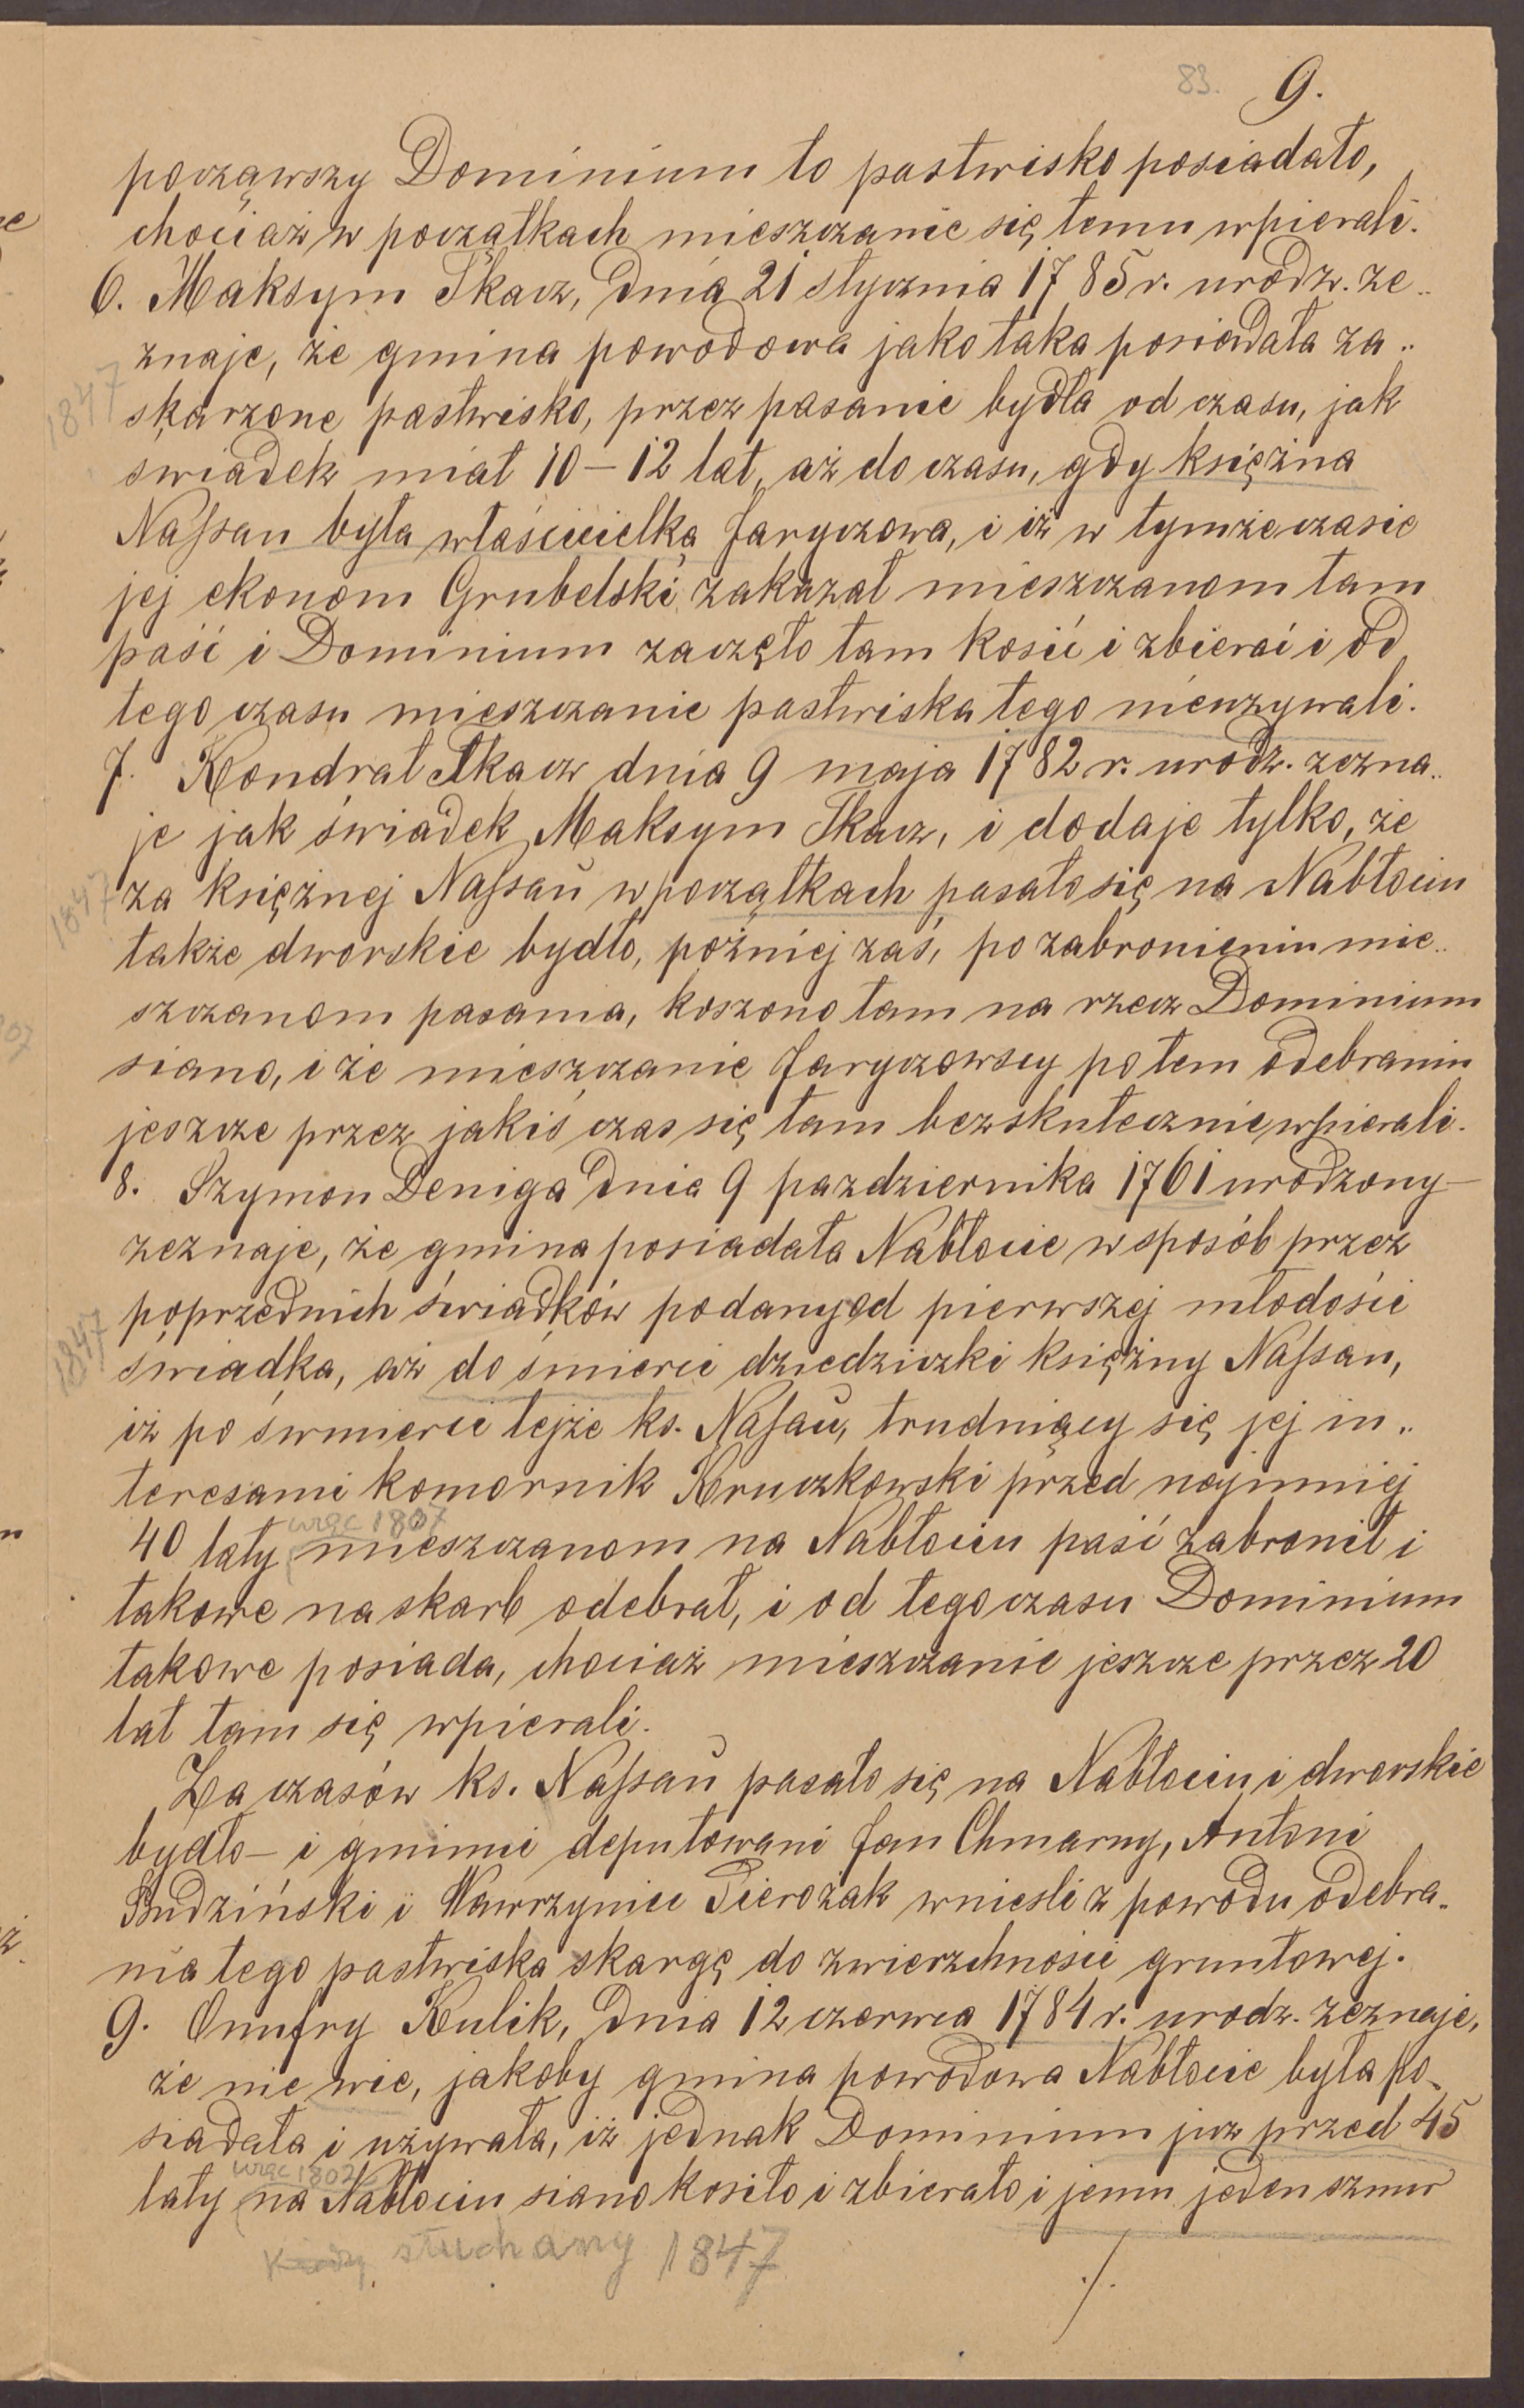 83. 9.
począwszy Dominium to pastwisko posiadało,
chociaż w początkach mieszczanie się temu wpierali.
6. Maksym Tkacz, dnia 21 stycznia 1785 r. urodz. ze„
znaje, że gmina powodowa jako taka posiadała za„
1847
skarzone pastwisko, przez pasanie bydła od czasu, jak
swiadek miał 10–12 lat, aż do czasu, gdy księżna
Nassau była właścicielką Jaryczowa, i iż w tymże czasie
jej ekonom Grubelski zakazał mieszczanom tam
paść i Dominium zaczęło tam kosić i zbierać i od
tego czasu mieszczanie pastwiska tego nieużywali.
7. Kondrat Tkacz dnia 9 maja 1782 r. urodz. zezna„
je jak świadek Maksym Tkacz, i dodaje tylko, że
1847
za księżnej Nassau w początkach pasało się na Nabłociu
także dworskie bydło, poźniej zaś, po zabronieniu mie„
szczanom pasania, koszono tam na rzecz Dominium
siano, i że mieszczanie Jaryczowscy po tem odebraniu
jeszcze przez jakiś czas się tam bezskutecznie wpierali.
8. Szymon Deniga dnia 9 pazdziernika 1761 urodzony–
zeznaje, że gmina posiadała Nabłocie w sposób przez
poprzednich świadków podany od pierwszej młodości
1847
świadka, aż do śmierci dziedziczki księżny Nassau,
iż po śwmierci tejże ks. Nasau, trudniący się jej in„
teresami komornik Kruczkowski przed najmniej
więc 1807
40 laty mieszczanom na Nabłociu paść zabronił i
takowe na skarb odebrał, i od tego czasu Dominium
takowe posiada, chociaż mieszczanie jeszcze przez 20
lat tam się wpierali.
Za czasów ks. Nassau pasało się na Nabłociu i dworskie
bydło – i gminni deputowani Jan Chmarny, Antoni
Budziński i Wawrzyniec Pierożak wniesli z powodu odebra„
nia tego pastwiska skargę do zwierzchności gruntowej.
9. Onufry Kulik, dnia 12 czerwca 1784 r. urodz. zeznaje,
że nie wie, jakoby gmina powodowa Nabłocie była po„
siadała i używała, iż jednak Dominium juz przed 45
więc 1802
laty na Nabłociu siano kosiło i zbierało i jemu jeden sznur
Kiedy słuchany 1847
./.